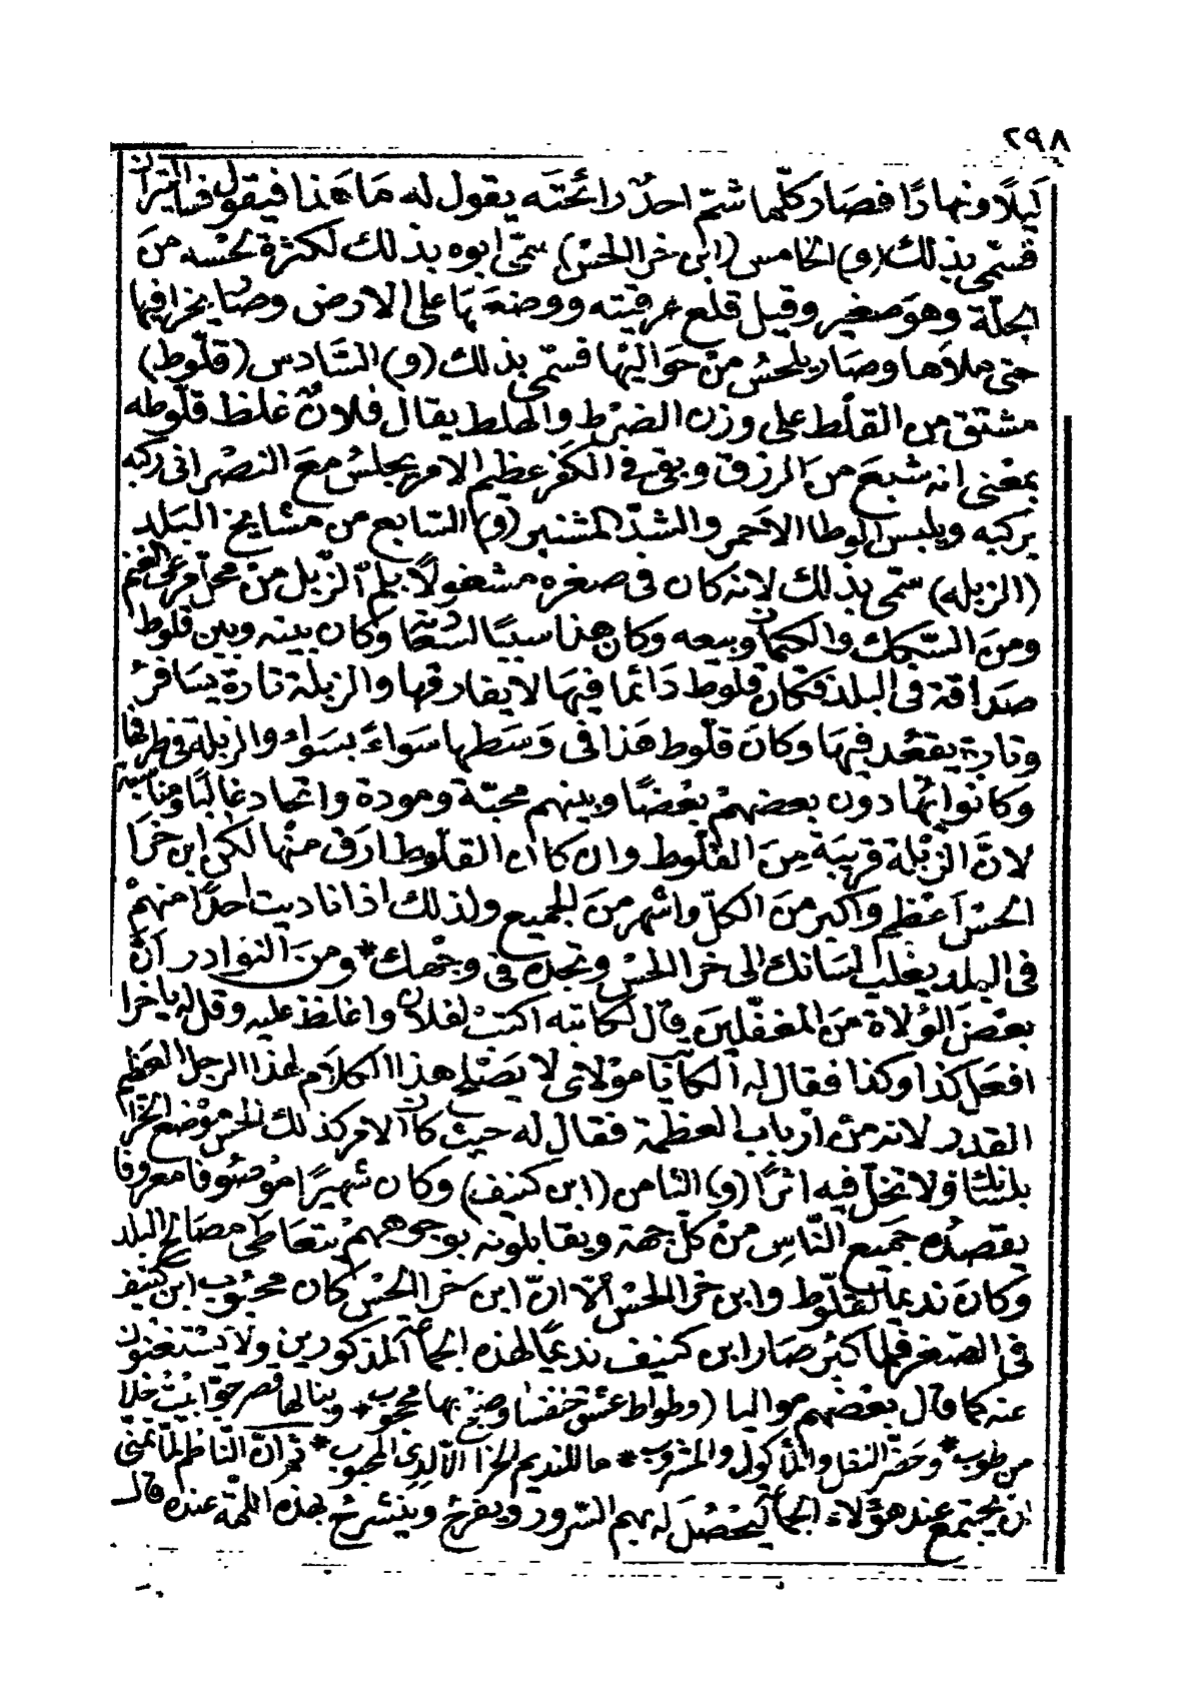 ٢٩٨
ليلًا ونهارًا فصار كلّما شمّ احدٌ رائحته يقول له ما هذا فيقول فسا التيران
فسمّى بذلك (و) الخامس (ابن خرا الحس) سمّى ابوه بذلك لكثرة لحسه من
الجلّة وهو صغير وقيل قلع عرقيته ووضعها على الارض وصار يخرا فيها
حتى ملأها وصار يلحس من حواليها فسمّى بذلك (و) السّادس (قلّوط)
مشتق من القلّط على وزن الضرط والهلط يقال فلانٌ غلظ قلّوطه
بمعنى انه شبع من الرزق وبقى فى الكفر عظيم الامر يجلس مع النصرانى ركبه
بركبه ويلبس الوطا الاحمر والشدّ المشنبر (و) السّابع من مشايخ البلد
(الزبله) سمّى بذلك لانه كان فى صغره مشغولًا بلمّ الزّبل من محل مرعى الغنم
ومن السّكك والكيمان وبيعه وكان هذا سببًا لسعادته وكان بينه وبين قلوط
صداقة فى البلد فكان قلوط دائما فيها لا يفارقها والزبلة تارة يسافر
وتارة يقعد فيها وكان قلّوط هذا فى وسطها سواءً بسواء والزبلة فى طرفها
وكانوا يهادون بعضهم بعضًا وبينهم محبّة ومودة واتحاد غالبًا ومناسبة
لانّ الزّبلة قريبة من القلّوط وان كان القلّوط ارق منها لكن ابن خرا
الحس اعظم واكبر من الكلّ واشهر من الجميع ولذلك اذا ناديت احدًا منهم
فى البلد يغلب لسانك الى خرا الحس وتجده فى وجهك * ومن النوادر انّ
بعض الولاة من المغفّلين قال لكاتبه اكتب لفلان واغلظ عليه وقل له يا خرا
افعل كذا وكذا فقال له الكاتب يا مولاى لا يصلح هذا الكلام لهذا الرجل العظيم
القدر لانه من ارباب العظمة فقال له حيث كان الامر كذلك الحس موضع الخرا
بلسانك ولا تخلّ فيه اثرًا (و) الثامن (ابن كنيف) وكان شهيرًا موصوفا معروفا
يقصده جميع النّاس من كلّ جهة ويقابلونه بوجوههم يتعاطى مصالح البلد
وكان نديمًا لقلّوط وابن خرا الحس الّا انّ ابن خرا الحس كان محبوب ابن كنيف
فى الصّغر فلما كبر صار ابن كنيف نديمًا لهذه الجماعة المذكورين ولا يستغنون
عنه كما قال بعضهم مواليا (وطواط عشق خنفسا وصبح بها محجوب * وبنا لها قصر جوّا بيت خلا
من طوب * وحضّر النقل والمأكول والمشروب * ما للنديم الخرا الّا الذى المحبوب * ثم انّ النّاظم لمّا تمنّى
ان يجتمع عند هؤلاء الجماعة ليحصل له بهم السّرور ويفرح وينشرح بهذه اللمّة عنده قال